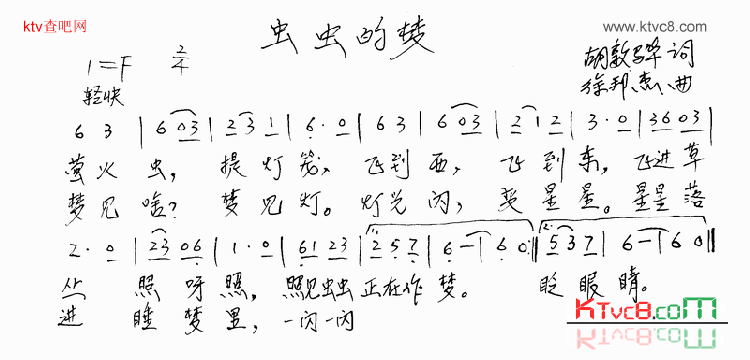 ktv查吧网
www.ktvc8.com
虫虫的梦
1=F 2/4
胡敦骅 词
轻快
徐邦杰 曲
6 3 | 6 03 | 23 1 | 6·0 | 6 3 | 6 03 | 2 12 | 3·0 | 3603 |
萤火虫，提灯笼，飞到西，飞到东，飞进草
梦见啥？梦见灯。灯光闪，契星星。星星落
2·0 | 23 06 | 1·0 | 61 23 | 1. 2 5 7 | 6 — | 6 0 :|| 2. 5 3 7 | 6 — | 6 0 ||
丛 照呀照，照见虫虫正在作梦。 眨眼睛。
进 睡梦里，一闪一闪
KTvc8.com
KTvc8.com